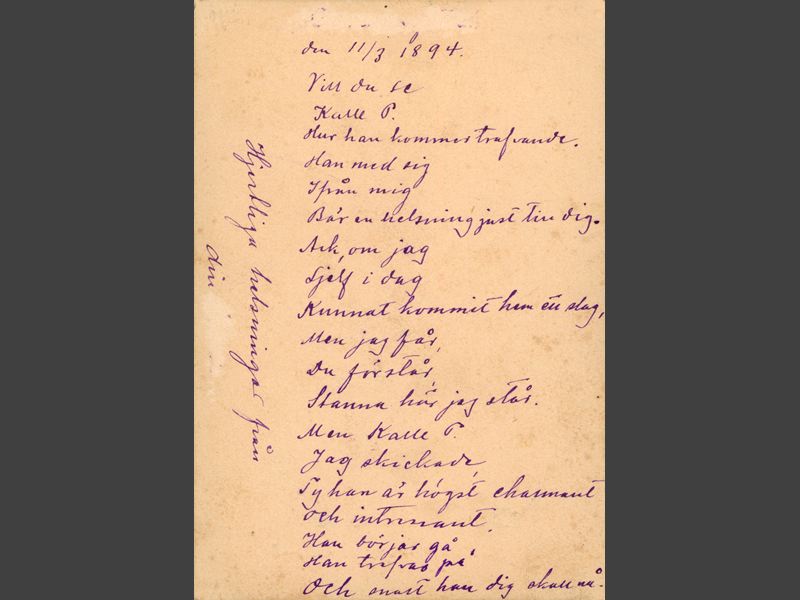 den 11/3 1894.
Vill du se
Kalle P.
Hur han kommer trafvande.
Han med sig
Ifrån mig
Bär en helsning just till dig.
Ack, om jag
Sjelf i dag
Kunnat kommit hem ett slag,
Men jag får,
Du förstår,
Stanna här jag står.
Men Kalle P.
Jag skickade,
Ty han är högst charmant
Och intressant.
Han börjar gå,
Han trafvar på,
Och snart han dig skall nå.
Hjertliga helsningar från
din